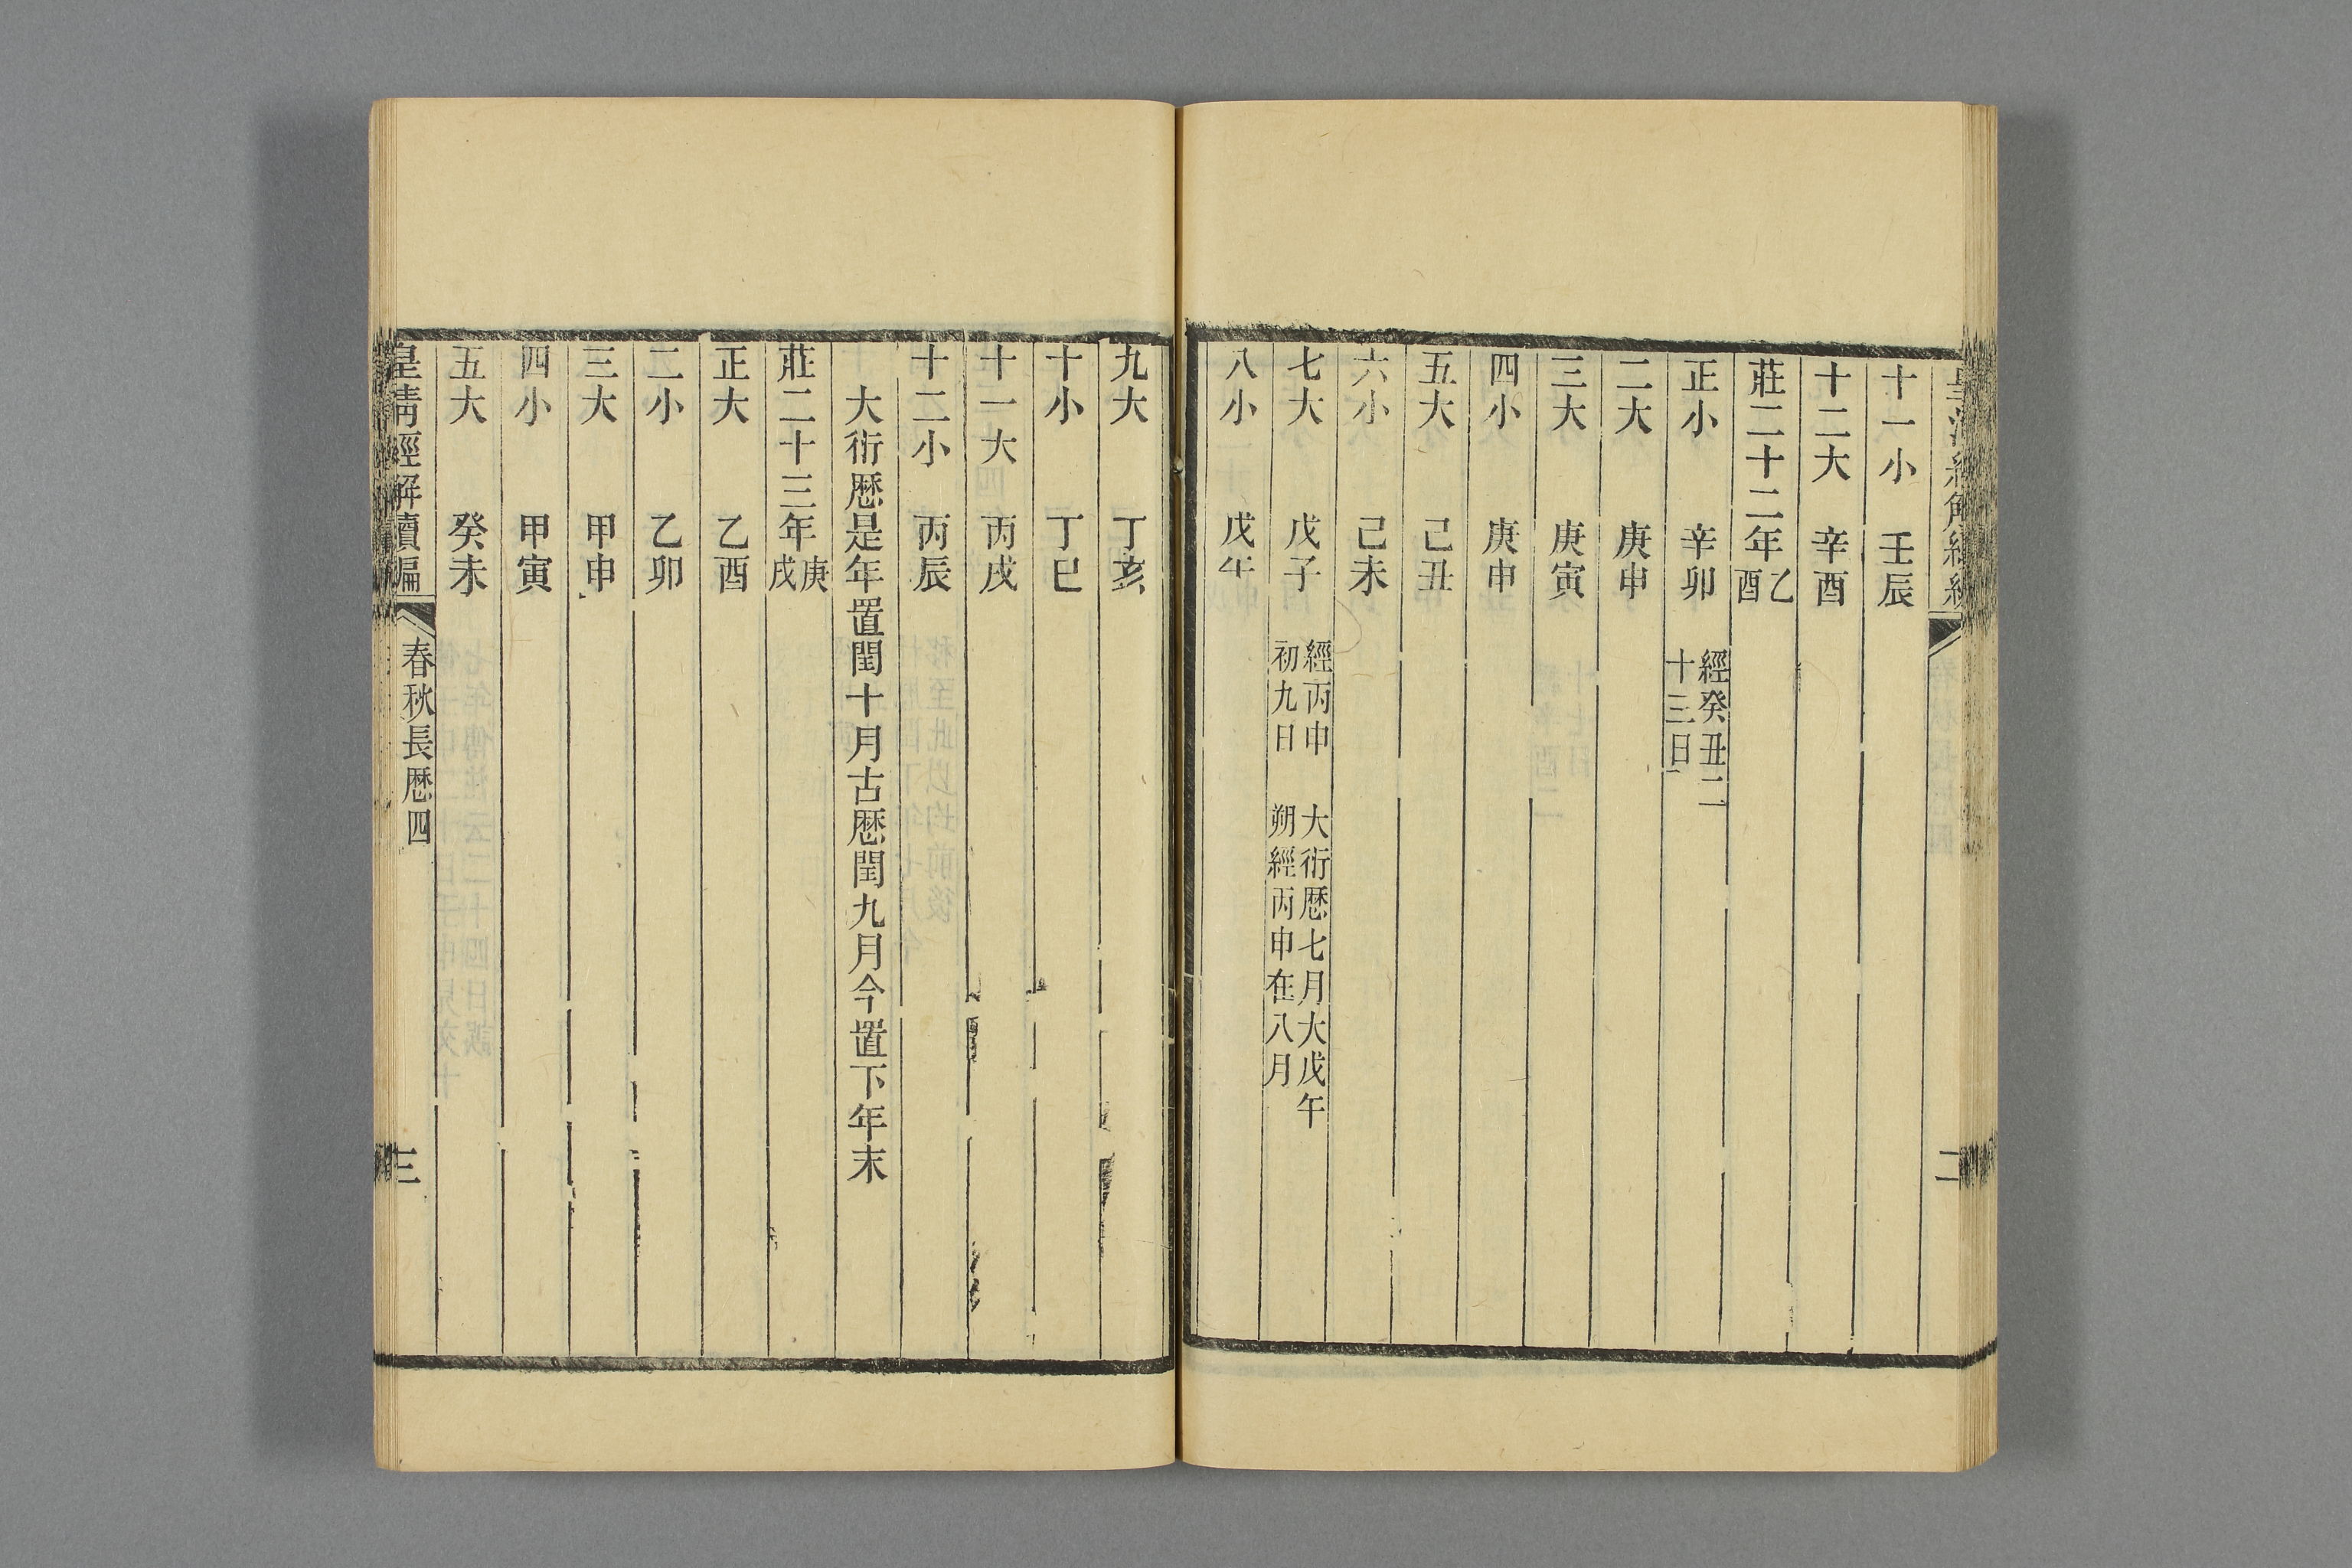 十一小 壬辰
十二大 辛酉
莊二十二年乙酉
正小 辛卯 經癸丑二十三日
二大 庚申
三大 庚寅
四小 庚申
五大 己丑
六小 己未
七大 戊子 經丙申初九日 大衍厯七月大戊午朔經丙申在八月
八小 戊午
九大 丁亥
十小 丁巳
十一大 丙戌
十二小 丙辰
大衍厯是年置閏十月古厯閏九月今置下年末
莊二十三年庚戌
正大 乙酉
二小 乙卯
三大 甲申
四小 甲寅
五大 癸未
皇清經解續編 春秋長厯四 三